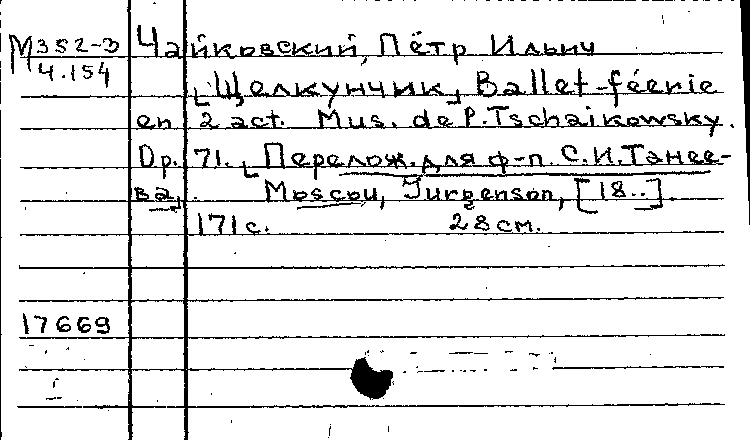 М352-3 Чайковский, Пётр Ильич
Ч.154
[Щелкунчик] Ballet-féerie
en 2 act. Mus. de P. Tschaikowsky.
Op. 71. [Перелож. для ф-п. С.И. Танее-
ва]. Moscou, Jurgenson, [18..].
171 с. 28 см.
17669